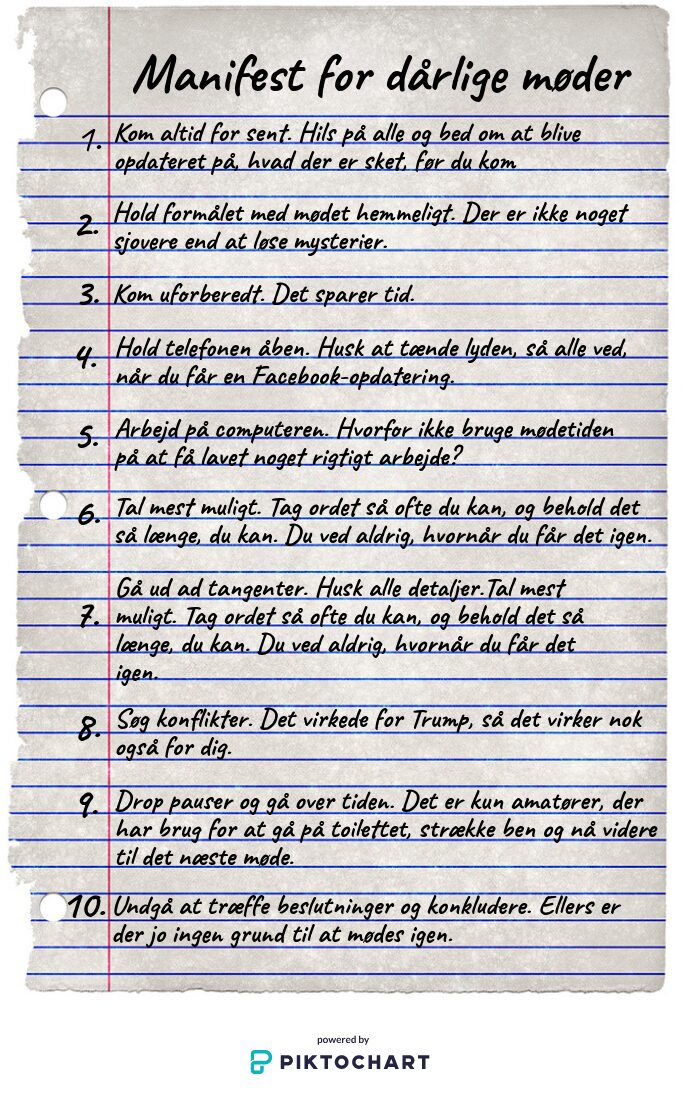 Manifest for dårlige møder
1. Kom altid for sent. Hils på alle og bed om at blive
opdateret på, hvad der er sket, før du kom
2. Hold formålet med mødet hemmeligt. Der er ikke noget
sjovere end at løse mysterier.
3. Kom uforberedt. Det sparer tid.
4. Hold telefonen åben. Husk at tænde lyden, så alle ved,
når du får en Facebook-opdatering.
5. Arbejd på computeren. Hvorfor ikke bruge mødetiden
på at få lavet noget rigtigt arbejde?
6. Tal mest muligt. Tag ordet så ofte du kan, og behold det
så længe, du kan. Du ved aldrig, hvornår du får det igen.
7. Gå ud ad tangenter. Husk alle detaljer.Tal mest
muligt. Tag ordet så ofte du kan, og behold det så
længe, du kan. Du ved aldrig, hvornår du får det
igen.
8. Søg konflikter. Det virkede for Trump, så det virker nok
også for dig.
9. Drop pauser og gå over tiden. Det er kun amatører, der
har brug for at gå på toilettet, strække ben og nå videre
til det næste møde.
10. Undgå at træffe beslutninger og konkludere. Ellers er
der jo ingen grund til at mødes igen.
powered by
PIKTOCHART